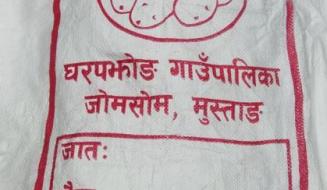 घरपझोङ गाउँपालिका
जोमसोम, मुस्ताङ
जातः